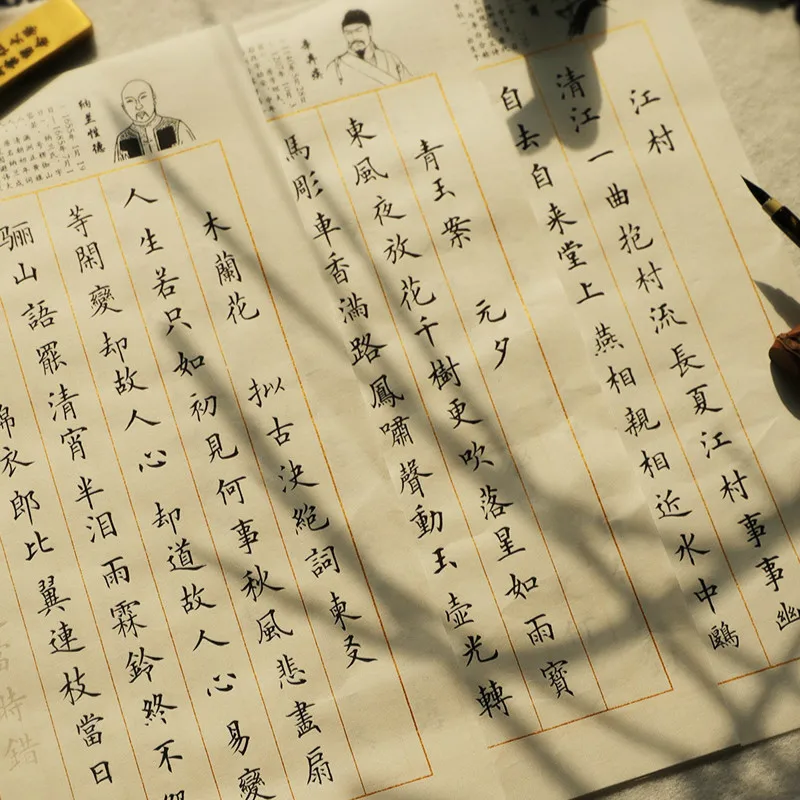 江村
清江一曲抱村流長夏江村事事幽
自去自来堂上燕相親相近水中鷗
青玉案 元夕
東風夜放花千樹更吹落星如雨寶
馬彫車香滿路鳳嘯聲動玉壺光轉
納蘭性德
木蘭花 拟古決絕詞柬友
人生若只如初見何事秋風悲畫扇
等閑變却故人心却道故人心易變
骊山語罷清宵半泪雨霖鈴終不
錦衣郎比翼連枝當日
時錯